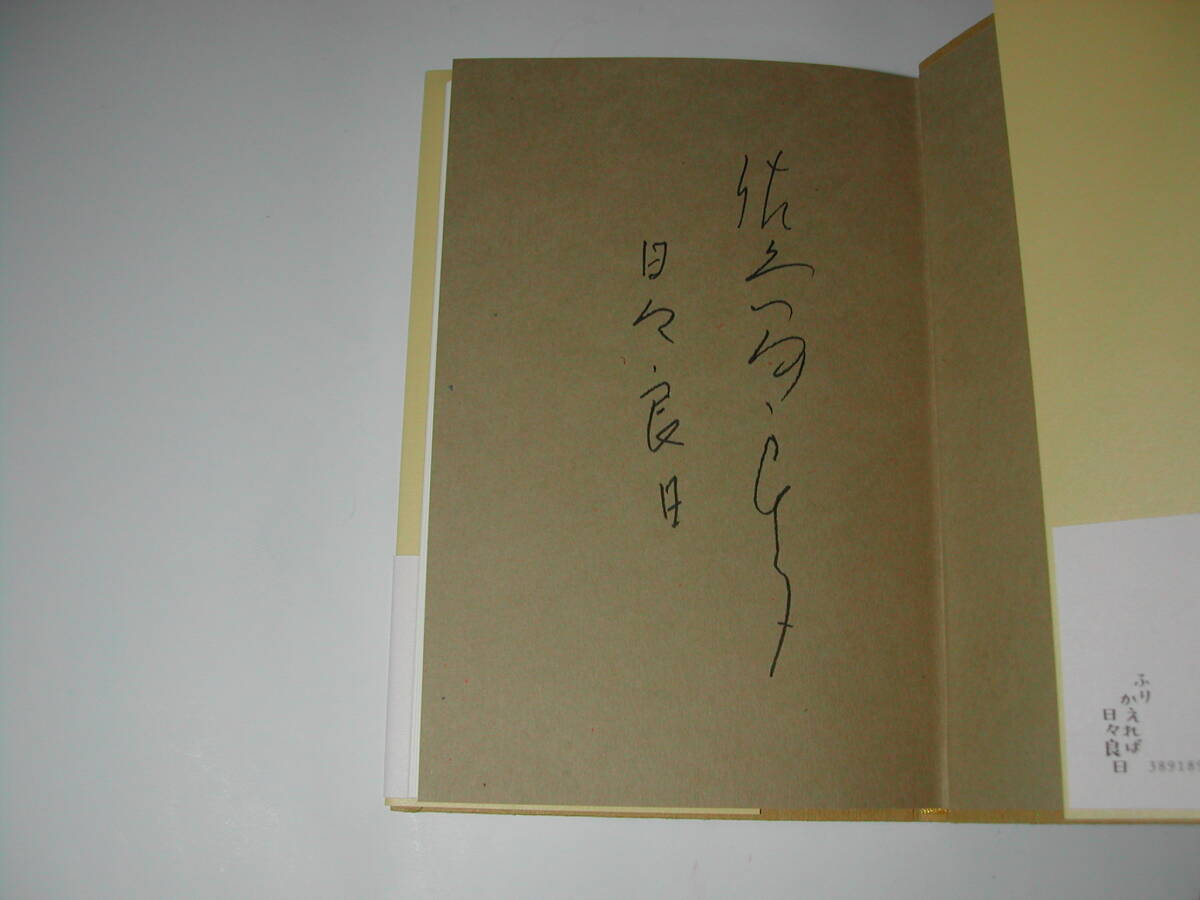 佐久間良子
日々良日
ふり
かえれば
日々良日
389189